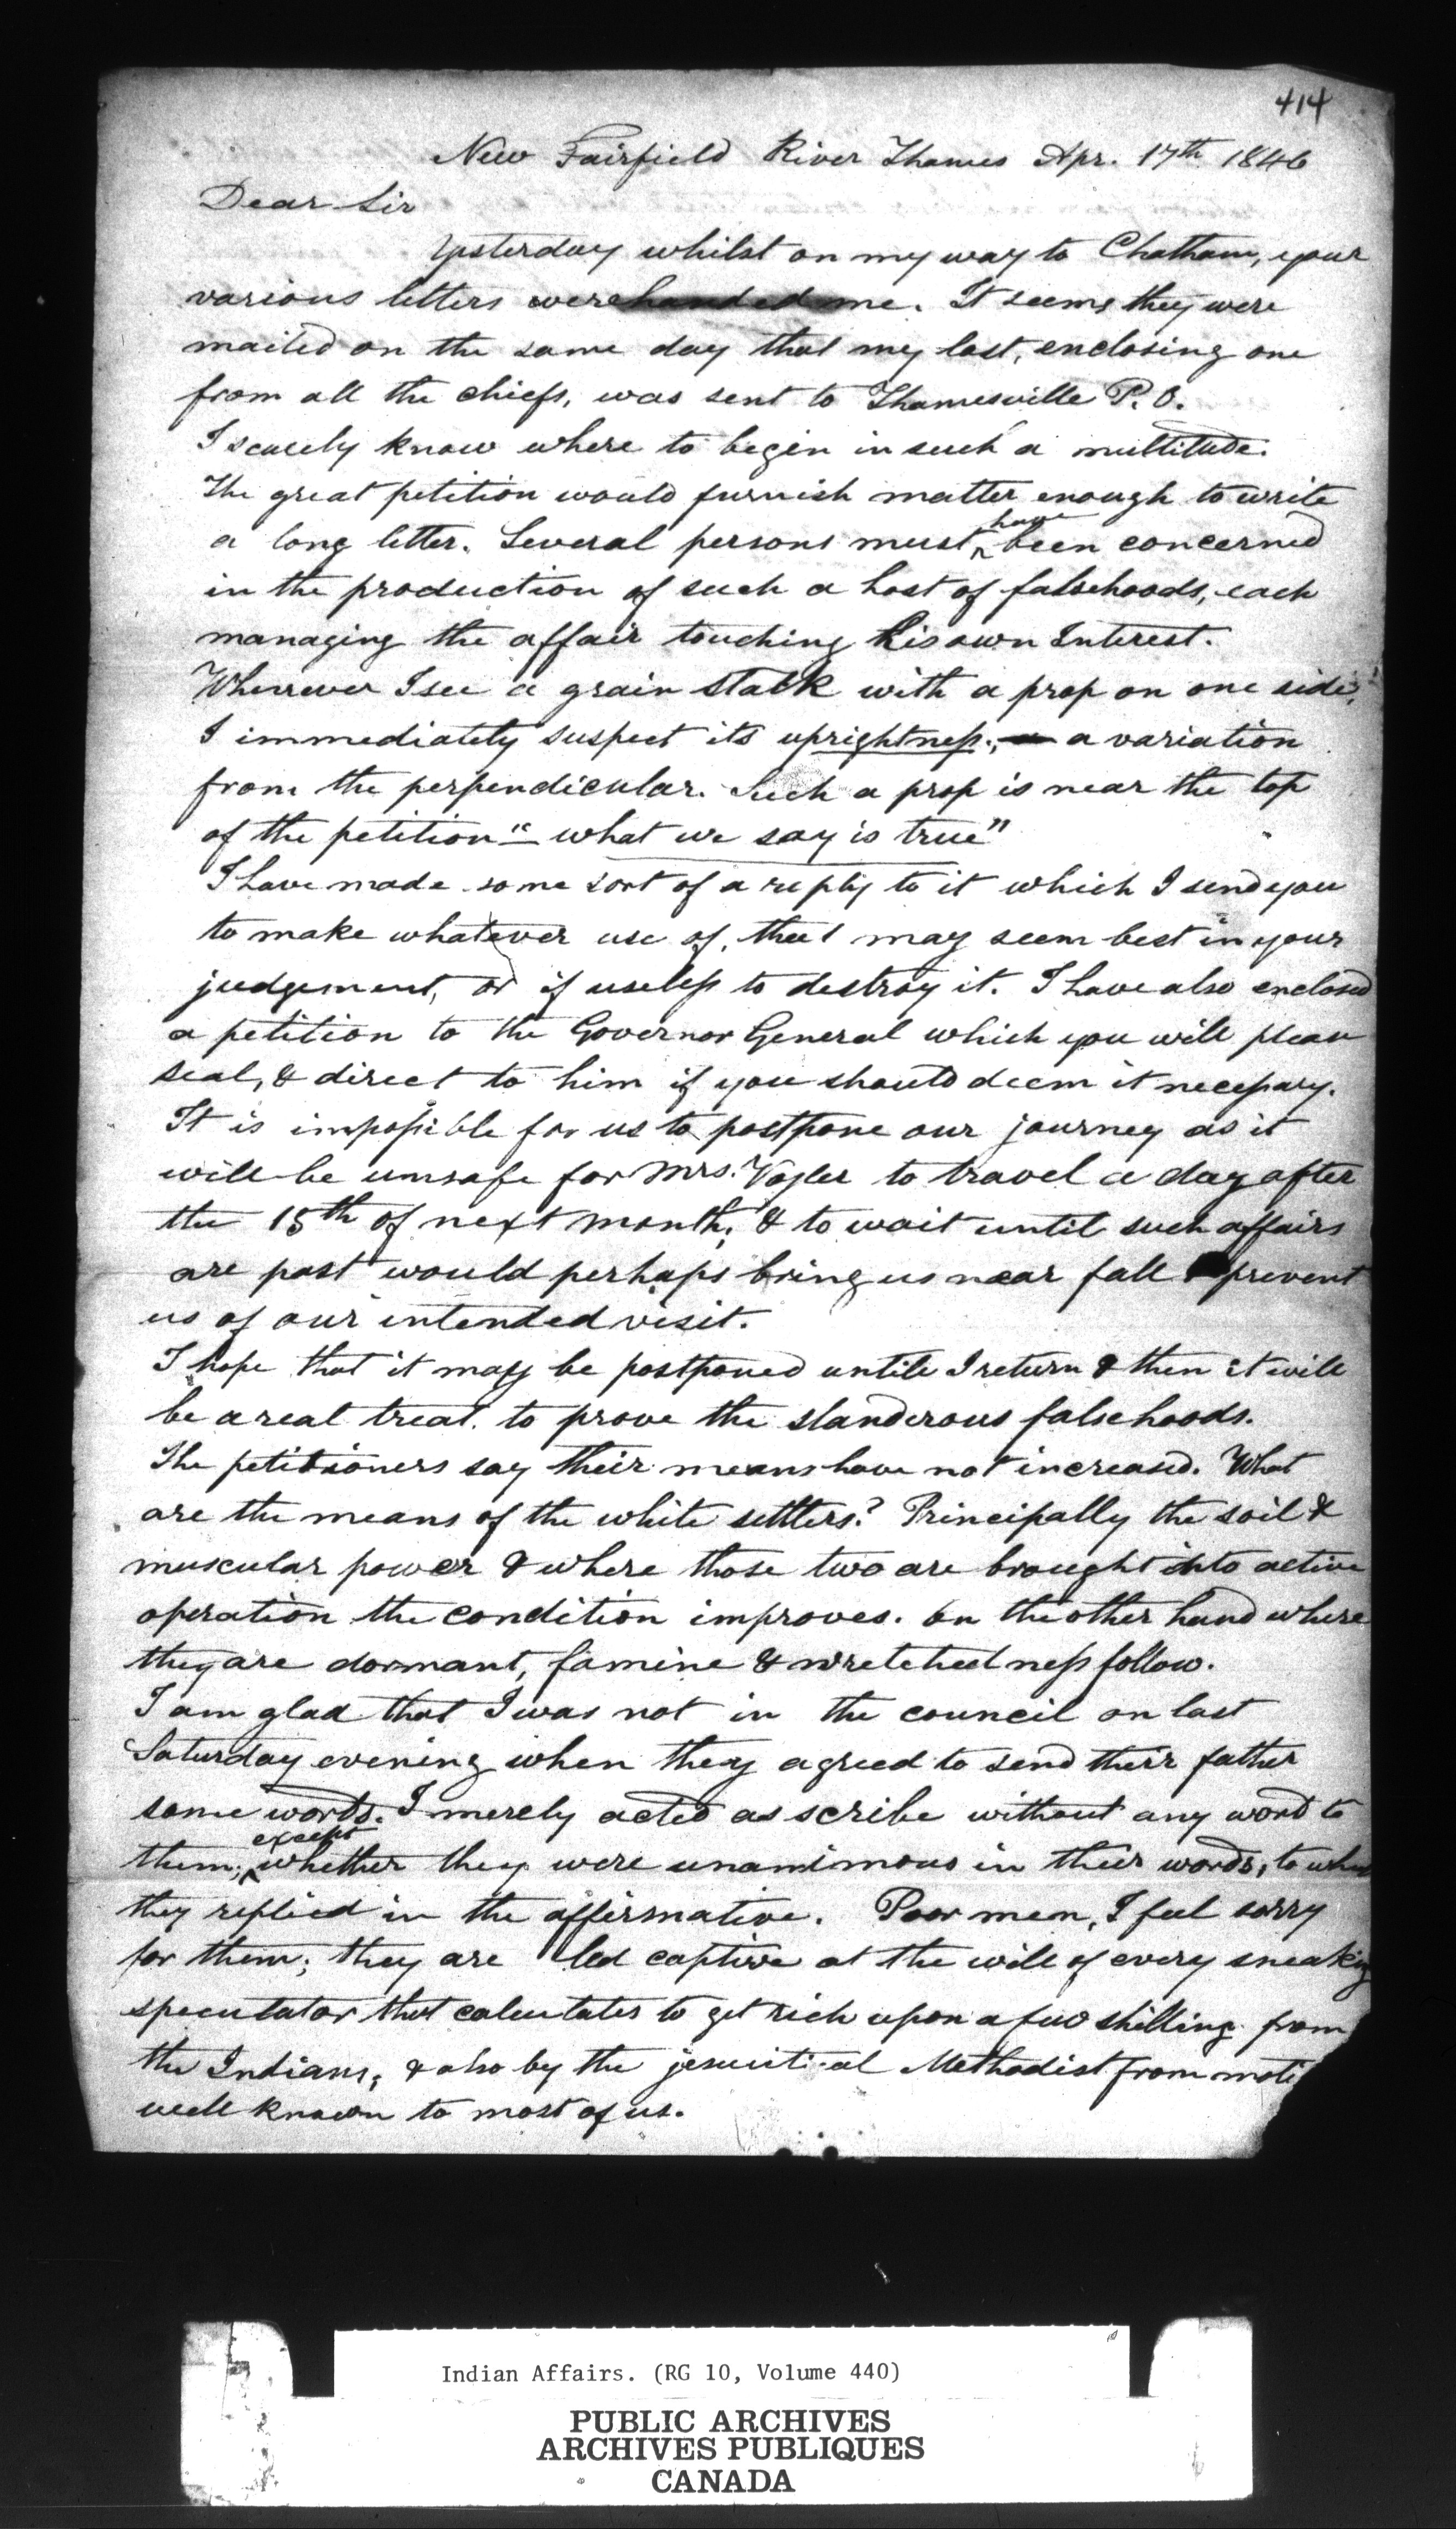 414
New Fairfield River Thames Apr. 17th 1846
Dear Sir
Yesterday whilst on my way to Chatham, your
various letters were handed me. It seems they were
mailed on the same day that my last, enclosing one
from all the chiefs, was sent to Thamesville P.O.
I scarcely know where to begin in such a multitude.
The great petition would furnish matter enough to write
a long letter. Several persons must have been concerned
in the production of such a host of falsehoods, each
managing the affair touching his own Interest.
Whenever I see a grain stack with a prop on one side,
I immediately suspect its uprightness; a variation
from the perpendicular. Such a prop is near the top
of the petition "what we say is true"
I have made some sort of a reply to it which I send you
to make whatever use of, that may seem best in your
judgement, or if useless to destroy it. I have also enclosed
a petition to the Governor General which you will please
seal, & direct to him if you should deem it necessary.
It is impossible for us to postpone our journey as it
will be unsafe for Mrs. Vogler to travel a day after
the 15th of next month; & to wait until such affairs
are past would perhaps bring us near fall & prevent
us of our intended visit.
I hope that it may be postponed untill I return & then it will
be a real treat to prove the slanderous falsehoods.
The petitioners say their means have not increased. What
are the means of the white settlers? Principally the soil &
muscular power & where those two are brought into active
operation the condition improves. On the other hand where
they are dormant, famine & wretchedness follow.
I am glad that I was not in the council on last
Saturday evening when they agreed to send their father
some words. I merely acted as scribe without any word to
them; except whether they were unanimous in their words, to which
they replied in the affirmative. Poor men, I feel sorry
for them; they are led captive at the will of every sneaking
speculator that calculates to get rich upon a few shilling from
the Indians; & also by the jesuitical Methodist from
well known to most of us.
Indian Affairs. (RG 10, Volume 440)
PUBLIC ARCHIVES
ARCHIVES PUBLIQUES
CANADA